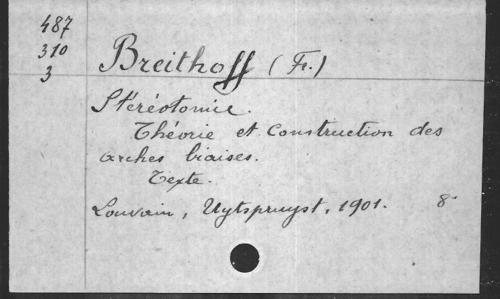 487
310
3
Breithoff (Fr.)
Stéréotomie.
Théorie et Construction des
arches biaises.
Texte.
Louvain, Uytspruyst, 1901. 8°